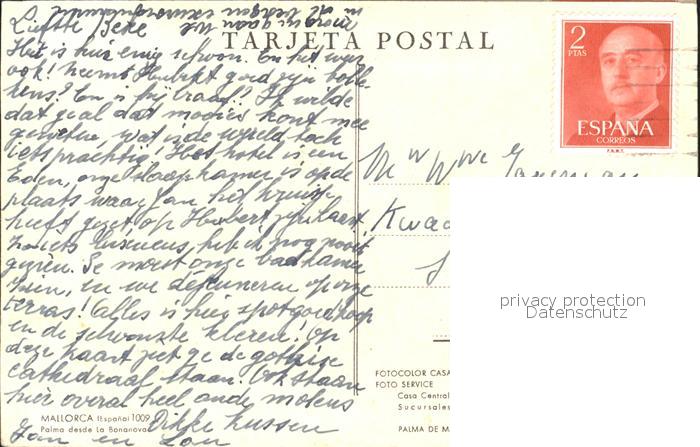 morgen gaan we
Liefste Beke
TARJETA POSTAL
Het is hier enig schoon. En het weer
ook! Neemt Hubert goed zijn bolle-
kens? En is hij braaf? Ik wilde
dat ge al dat moois kont mee
genieten, wat is de wereld toch
iets prachtig. Het hotel is een
Eden, onze slaapkamer is op de
plaats waar Jan het kruisje
heeft gezet op Hubert zijn kaart,
zo iets luxueus, heb ik nog nooit
gezien. Je moest onze badkamer
zien, en we déjeuneren op onze
terras! Alles is hier spotgoedkoop
en de schoonste kleren! Op
deze kaart ziet ge de gothise
cathedraal staan. Ook staan
hier overal heel oude molens
Dikke kussen
Jan en Lou
MALLORCA (España) 1009
Palma desde La Bonanova
2
PTAS
ESPAÑA
CORREOS
F.N.M.T.
Mr Wwe
Kwad
privacy protection
Datenschutz
FOTOCOLOR CASA
FOTO SERVICE
Casa Central
Sucursales
PALMA DE M